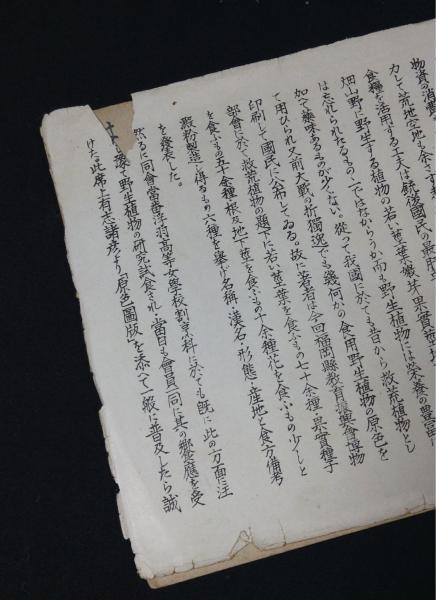 物資の消費
力して荒地空地も余さず耕
食糧を活用する工夫は銃後國民の最
畑山野に野生する植物の若い莖葉嫩芽果實種
は忘れられたるもの一ではなからうか而も野生植物には榮養の豊富
加へ藥味あるものが少くない。從つて我國に於ても昔から救荒植物とし
て用ひられ又前大戰の折獨逸でも幾何かの食用野生植物の原色を
印刷して國民に公布してゐる。故に著者は今回福岡縣教育振興會博物
部會に於て救荒植物の題下に若い莖葉を食ふもの七十余種・果實種子
を食ふもの五十余種・根及地下莖を食ふもの八十余種花を食ふもの少しと
澱粉製造・得るもの六種を擧げ名稱・漢名・形態・産地と食方備考
を發表した。
然るに同會當番浮羽高等女學校割烹科に於ても既に此の方面に注
て野生植物の研究試食され當日も會員一同に其の饗應を受
けたは此席上有志諸彦より「原色圖版」を添へて一般に普及したら誠